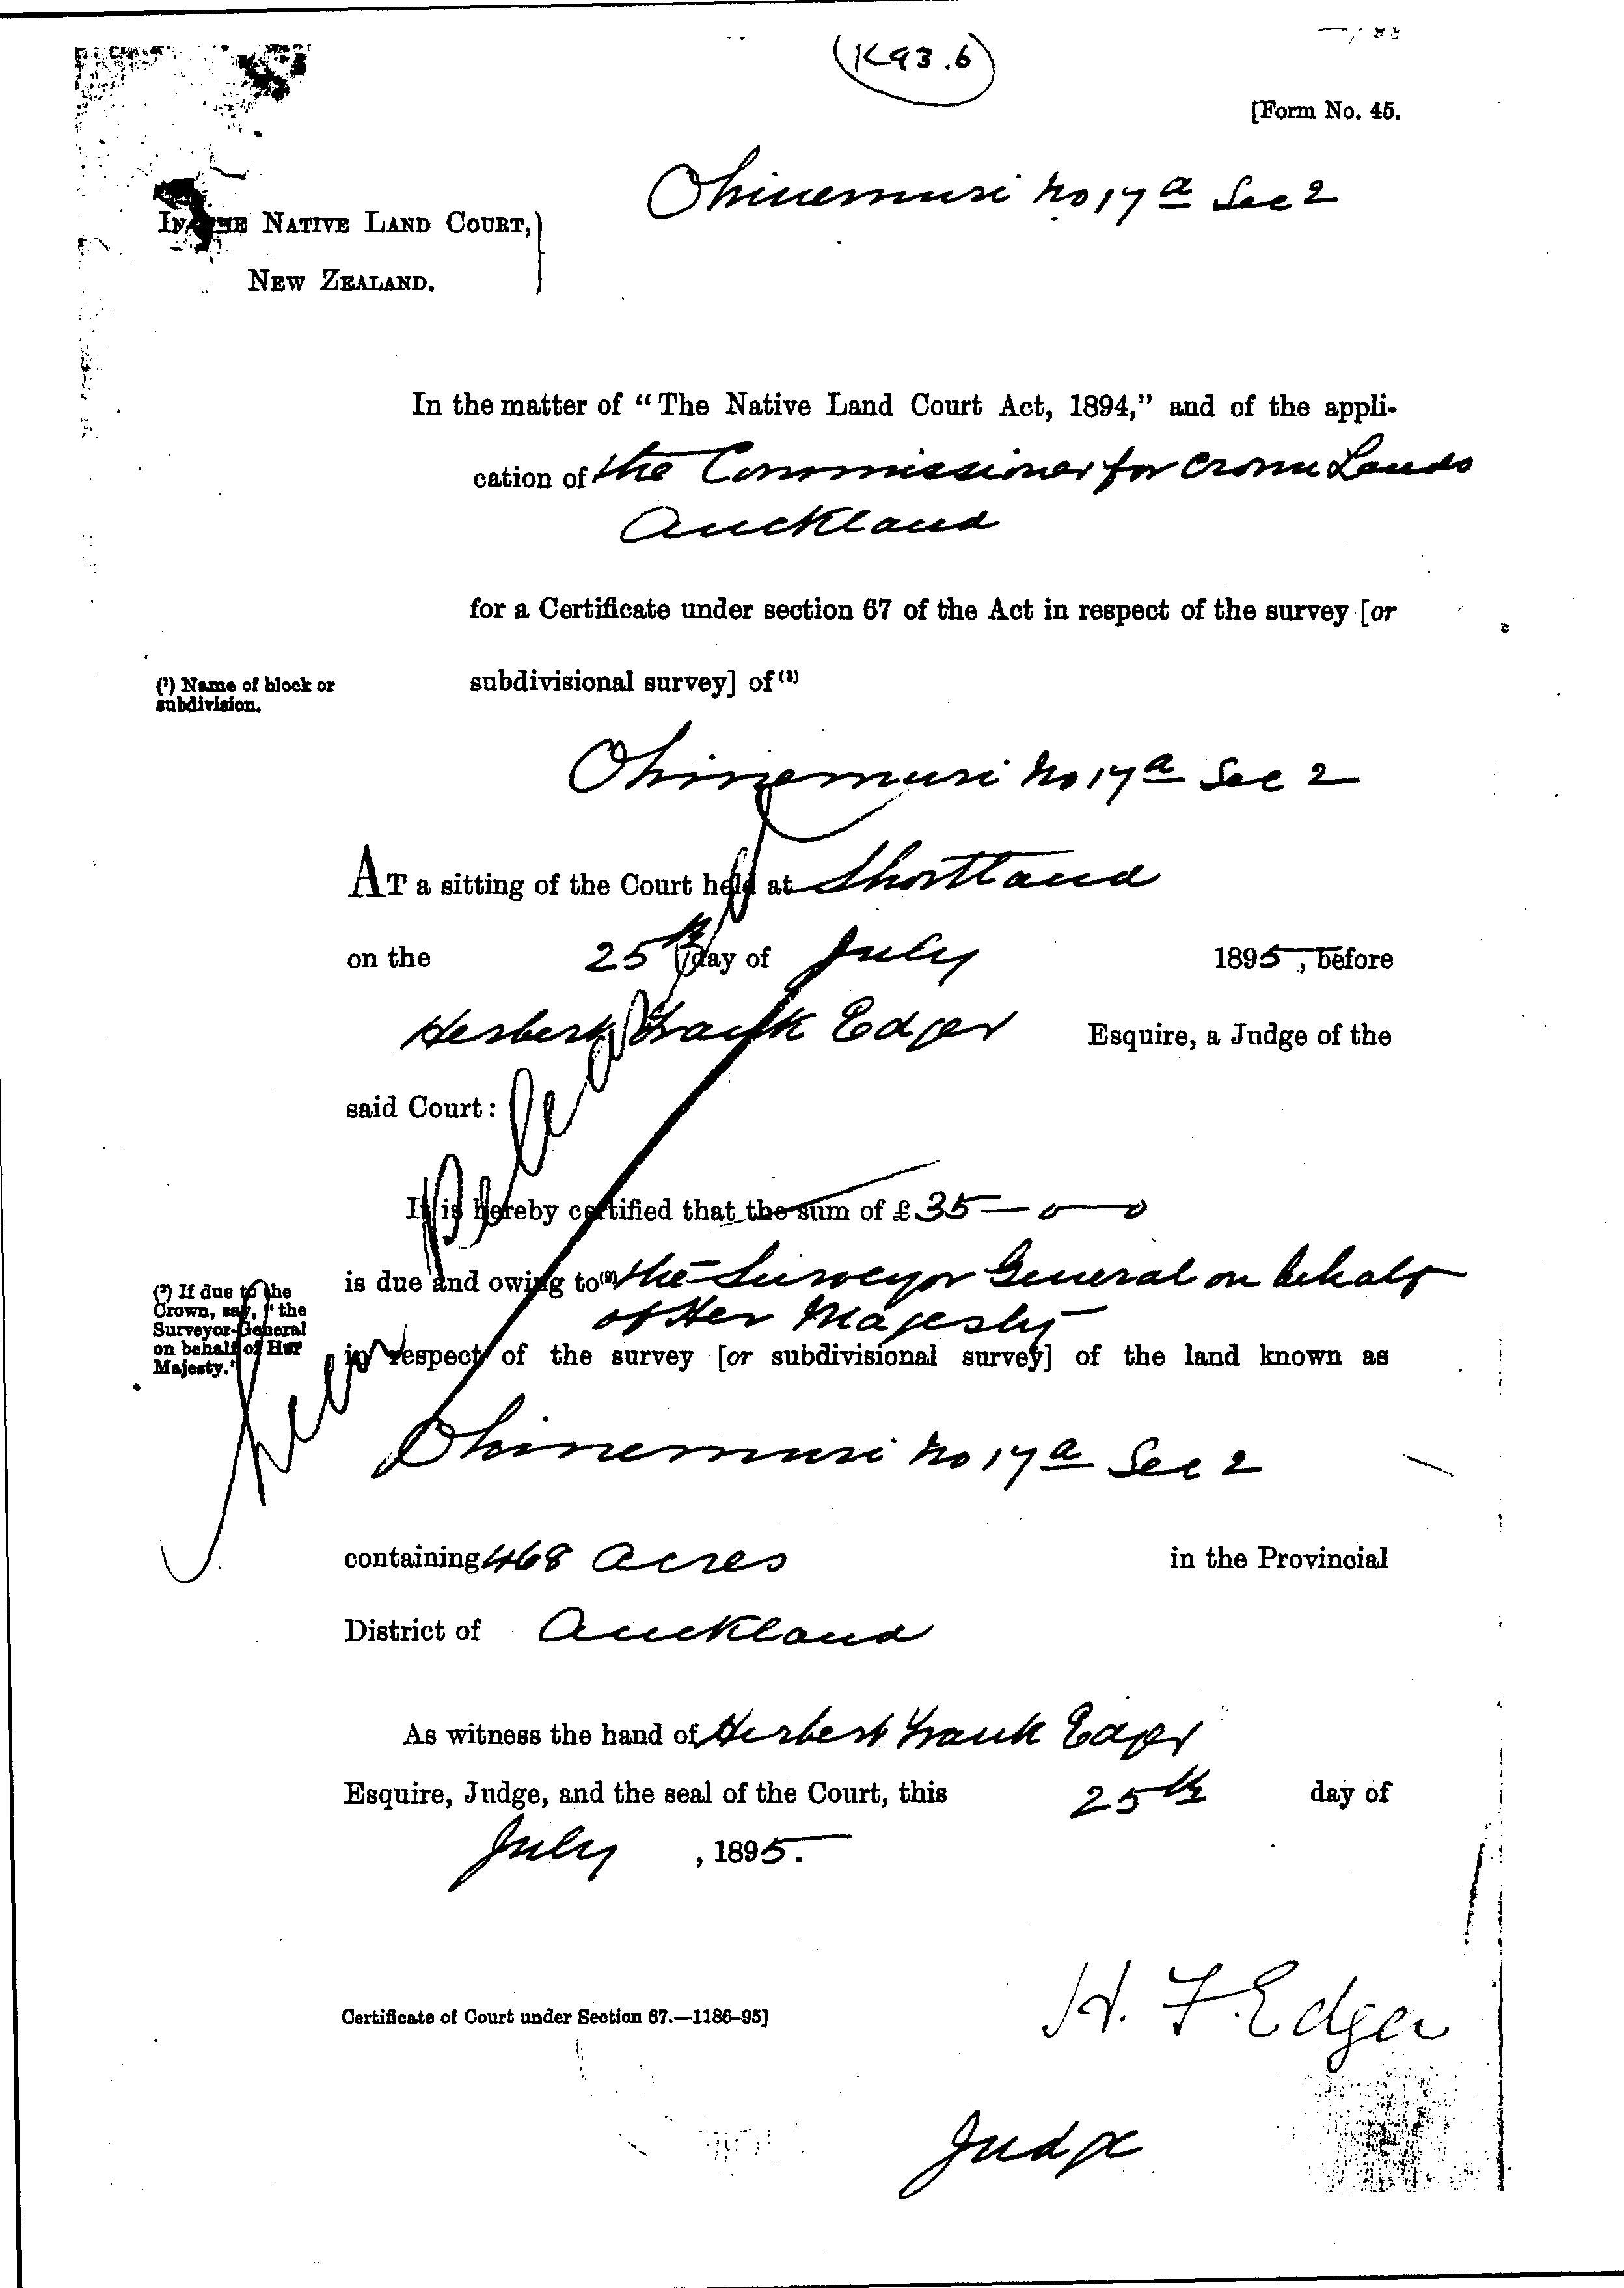 (K93.6)
[Form No. 45.
Ohinemuri No 17a Sec 2
IN THE NATIVE LAND COURT,
NEW ZEALAND.
In the matter of “The Native Land Court Act, 1894,” and of the appli-
cation of the Commissioner for Crown Lands
Auckland
for a Certificate under section 67 of the Act in respect of the survey [or
(¹) Name of block or
subdivision.
subdivisional survey] of (¹)
Ohinemuri No 17a Sec 2
AT a sitting of the Court held at Shortland
on the 25th day of July 1895, before
Herbert Frank Edger Esquire, a Judge of the
said Court:
It is hereby certified that the sum of £35—0—0
is due and owing to (²) the Surveyor General on behalf
of Her Majesty
(²) If due to the
Crown, say, “the
Surveyor-General
on behalf of Her
Majesty.”
in respect of the survey [or subdivisional survey] of the land known as
Ohinemuri No 17a Sec 2
containing 468 acres in the Provincial
District of Auckland
Lien Released
As witness the hand of Herbert Frank Edger
Esquire, Judge, and the seal of the Court, this 25th day of
July , 1895.
H. F. Edger
Certificate of Court under Section 67.—1186–95]
Judge